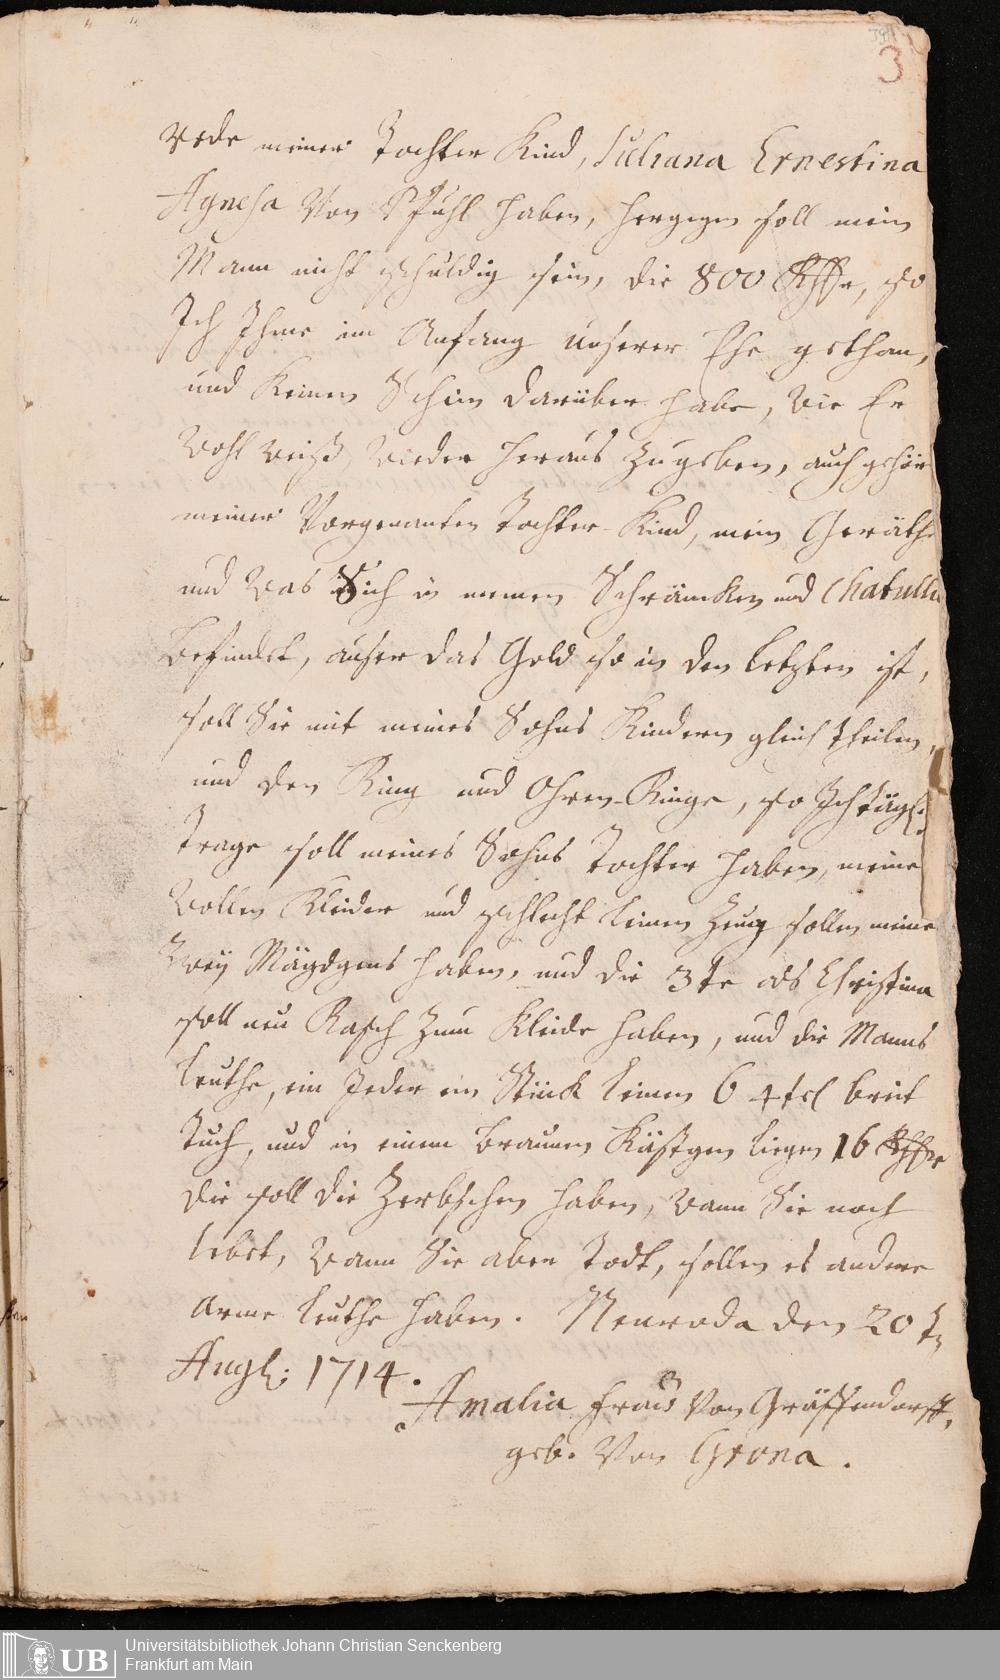 3
rode meiner Tochter Kind, Juliana Ernestina
Agnesa Von Pfuhl haben, hergegen soll mein
Mann nicht schuldig sein, die 800 Rthlr, so
Ich Ihme im Anfang unserer Ehe gethan,
und Keinen Schein darüber habe, wie Er
wohl weiß, wieder heraus zu geben, auch gehör
meiner Vorgenanten Tochter Kind, mein Geräthe
und was Sich in meinen Schräncken und Chatulle
befindet, auser das Gold so in den letzten ist,
soll Sie mit meines Sohns Kindern gleich theilen,
und den Ring und Ohren-Ringe, so Ich tägl:
trage soll meines Sohns Tochter haben, meine
wollen Kleider und schlecht leinen Zeug sollen meine
zwey Mägdgens haben, und die 3te als Christina
soll neu Rasch zum Kleide haben, und die Manns
leuthe, ein Jeder ein Stück leinen 6 4tel breit
Tuch, und in einem braunen Kästgen liegen 16 Rthlr
die soll die Zerbschen haben, wann Sie noch
lebet, wann Sie aber Todt, sollen es andere
arme leuthe haben. Neuroda den 20 t
Augl: 1714.
Amalia Frau Von Gräffendorff,
geb. Von Grona.
UB
Universitätsbibliothek Johann Christian Senckenberg
Frankfurt am Main